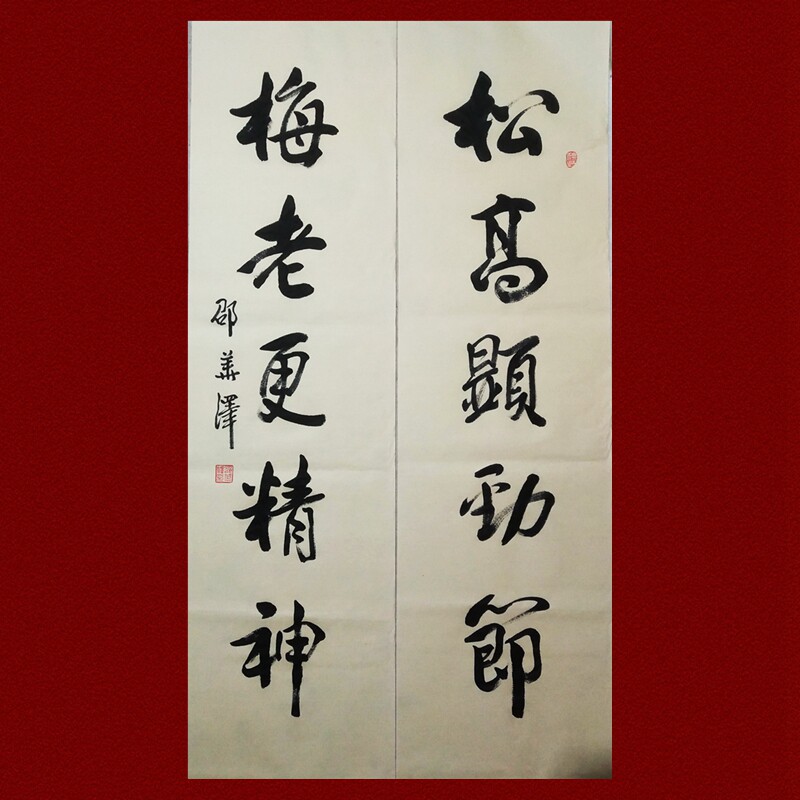 松高顯勁節
梅老更精神
邵華澤